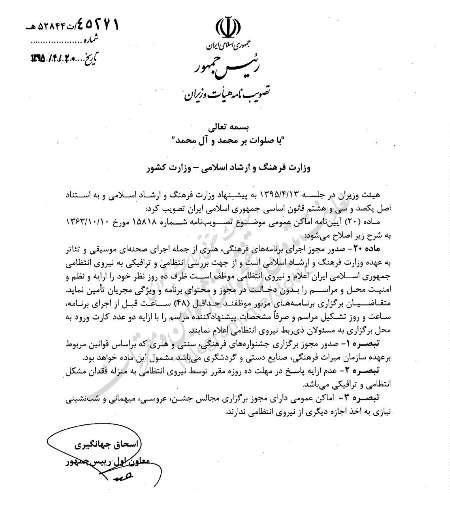 ۴۵۲۷۱/ت۵۲۸۴۴هـ
شماره
تاریخ ۱۳۹۵/۴/۲۰
جمهوری اسلامی ایران
رئیس جمهور
تصویب نامه هیأت وزیران
بسمه تعالی
"با صلوات بر محمد و آل محمد"
وزارت فرهنگ و ارشاد اسلامی – وزارت کشور
هیئت وزیران در جلسه ۱۳۹۵/۴/۱۳ به پیشنهاد وزارت فرهنگ و ارشاد اسلامی و به استناد
اصل یکصد و سی و هشتم قانون اساسی جمهوری اسلامی ایران تصویب کرد:
ماده (۲۰) آیین‌نامه اماکن عمومی موضوع تصویب‌نامه شماره ۱۵۸۱۸ مورخ ۱۳۶۳/۱۰/۱۰
به شرح زیر اصلاح می‌شود:
ماده ۲۰- صدور مجوز اجرای برنامه‌های فرهنگی، هنری از جمله اجرای صحنه‌ای موسیقی و تئاتر
به عهده وزارت فرهنگ و ارشاد اسلامی است و از جهت بررسی انتظامی و ترافیکی به نیروی انتظامی
جمهوری اسلامی ایران اعلام و نیروی انتظامی موظف است ظرف ده روز نظر خود را ارایه و نظم و
امنیت محل و مراسم را بدون دخالت در مجوز و محتوای برنامه و ویژگی مجریان تأمین نماید.
متقاضیان برگزاری برنامه‌های مزبور موظفند حداقل (۴۸) ساعت قبل از اجرای برنامه،
ساعت و روز تشکیل مراسم و صرفاً مشخصات پیشنهاددکننده مراسم را با ارایه دو عدد کارت ورود به
محل برگزاری به مسئولان ذی‌ربط نیروی انتظامی اعلام نمایند.
تبصره ۱- صدور مجوز برگزاری جشنواره‌های فرهنگی، سنتی و هنری که براساس قوانین مربوط
برعهده سازمان میراث فرهنگی، صنایع دستی و گردشگری می‌باشد مشمول این ماده خواهد بود.
تبصره ۲- عدم ارایه پاسخ در مهلت ده روزه مقرر توسط نیروی انتظامی به منزله فقدان مشکل
انتظامی و ترافیکی می‌باشد.
تبصره ۳- اماکن عمومی دارای مجوز برگزاری مجالس جشن، عروسی، میهمانی و شب‌نشینی
نیازی به اخذ اجازه دیگری از نیروی انتظامی ندارند.
اسحاق جهانگیری
معاون اول رییس‌جمهور